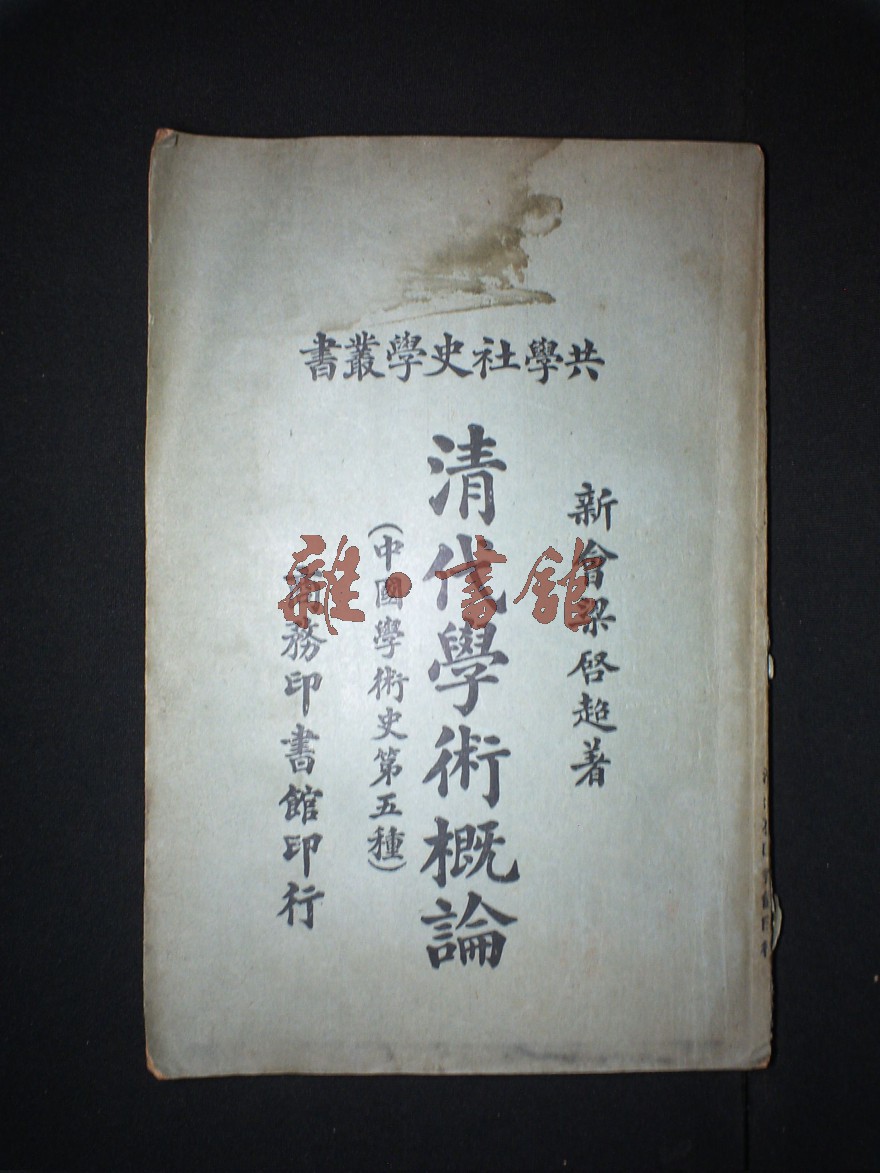 共學社史學叢書
新會梁啓超著
清代學術概論
(中國學術史第五種)
商務印書館印行
雜·書館